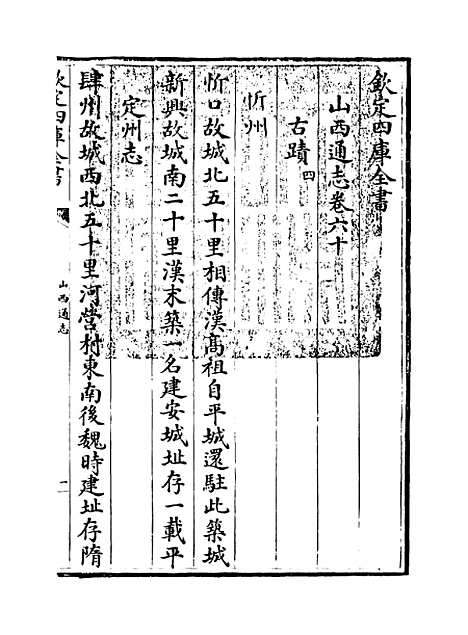 欽定四庫全書
山西通志卷六十
古蹟四
忻州
忻口故城北五十里相傳漢髙祖自平城還駐此築城
新興故城南二十里漢末築一名建安城址存一載平
定州志
肆州故城西北五十里河營村東南後魏時建址存隋
欽定四庫全書
山西通志
一